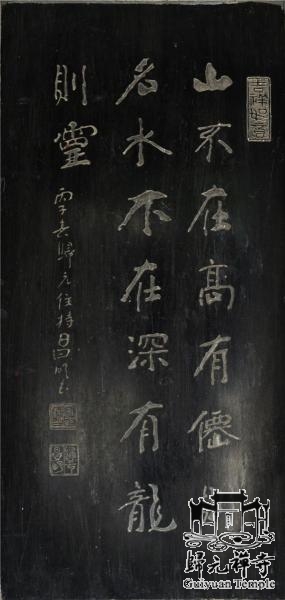 吉祥如意
山不在高有僊則
名水不在深有龍
則靈
歸元住持昌明
歸元禪寺
Guiyuan Temple